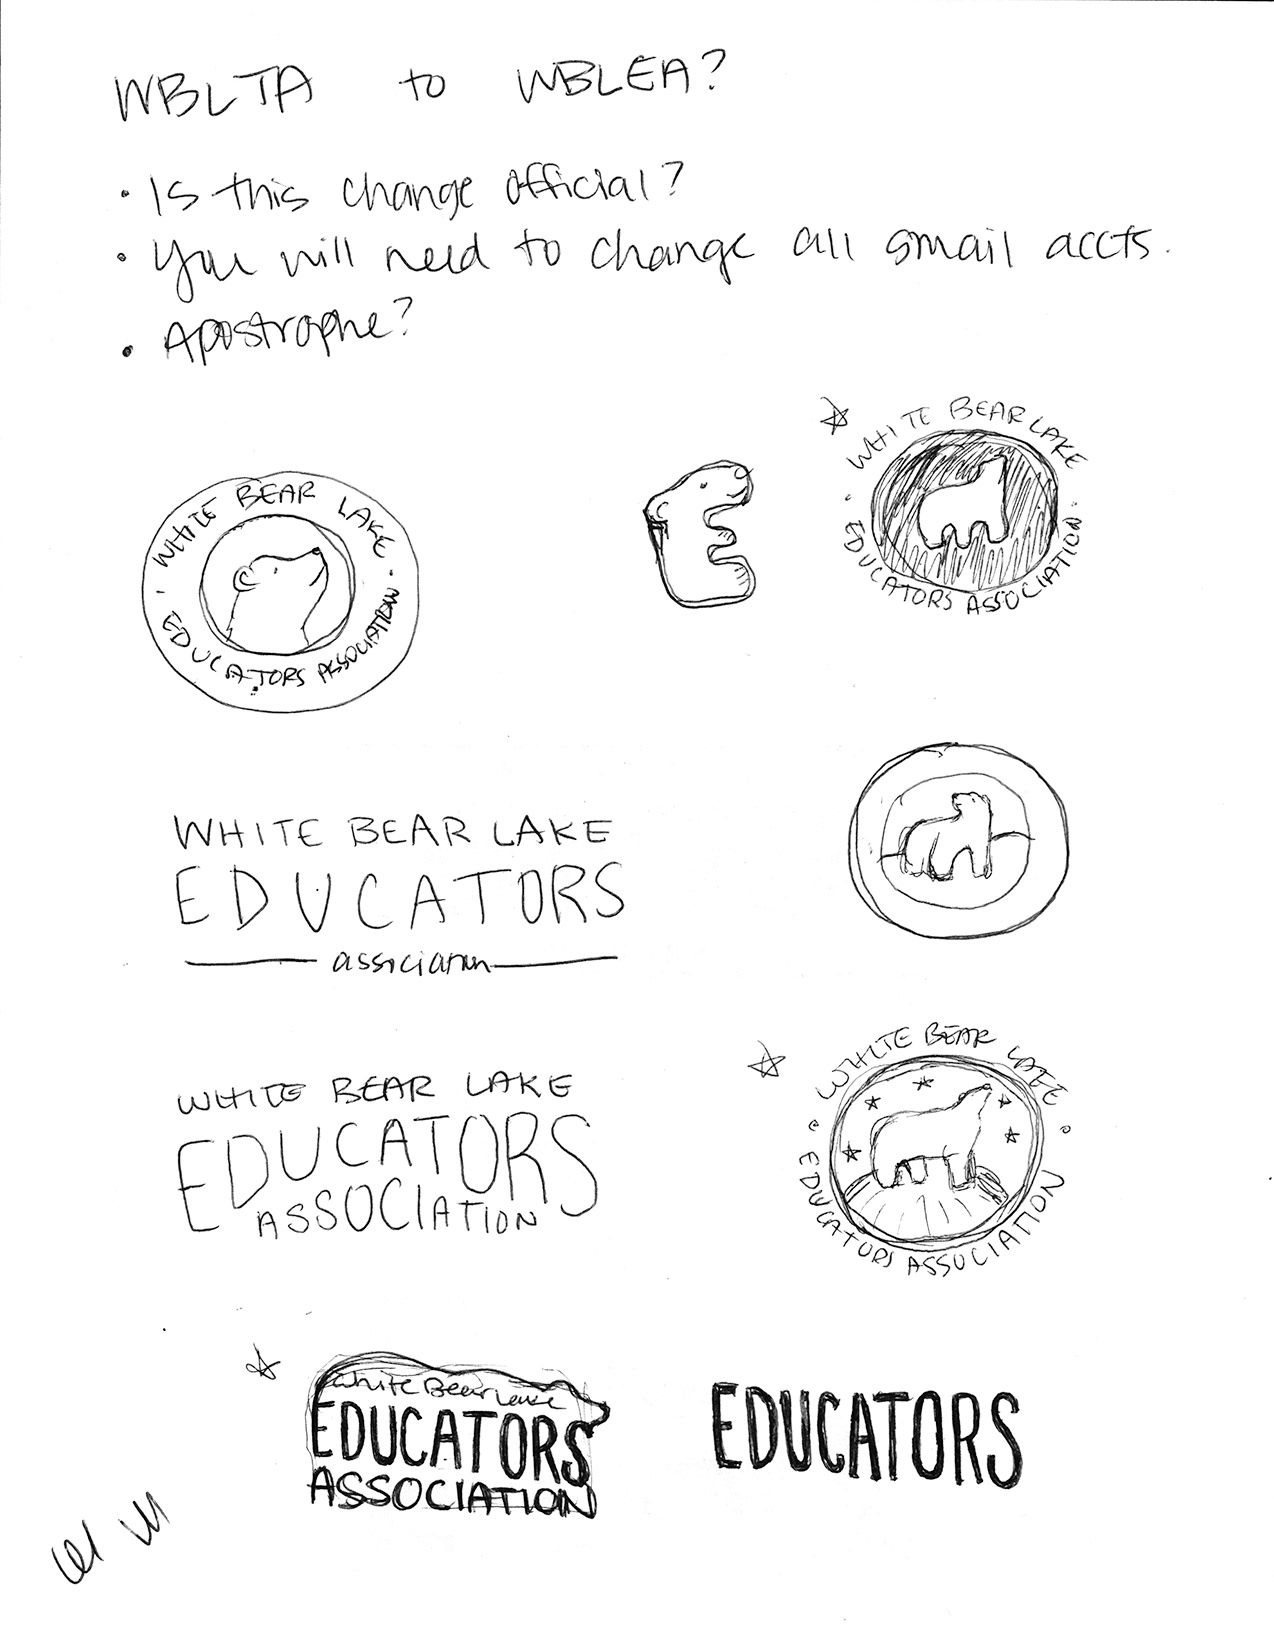 WBLTA to WBLEA?
• Is this change official?
• You will need to change all gmail accts.
• Apostrophe?
WHITE BEAR LAKE
• EDUCATORS ASSOCIATION •
E
WHITE BEAR LAKE
• EDUCATORS ASSOCIATION •
WHITE BEAR LAKE
EDUCATORS
association
WHITE BEAR LAKE
EDUCATORS
ASSOCIATION
WHITE BEAR LAKE
• EDUCATORS ASSOCIATION •
White Bear Lake
EDUCATORS
ASSOCIATION
EDUCATORS